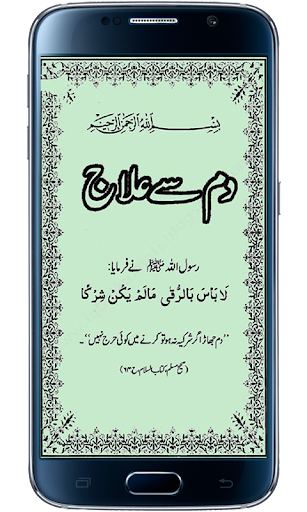 بِسْمِ اللهِ الرَّحْمٰنِ الرَّحِيْمِ
دم سے علاج
رسول اللہ ﷺ نے فرمایا:
لَا بَاسَ بَالرُّقٰى مَالَمْ يَكُنْ شِرْكًا
”دم جھاڑ اگر شرکیہ نہ ہو تو کرنے میں کوئی حرج نہیں“۔
(صحیح مسلم، کتاب السلام، ح ۶۴)